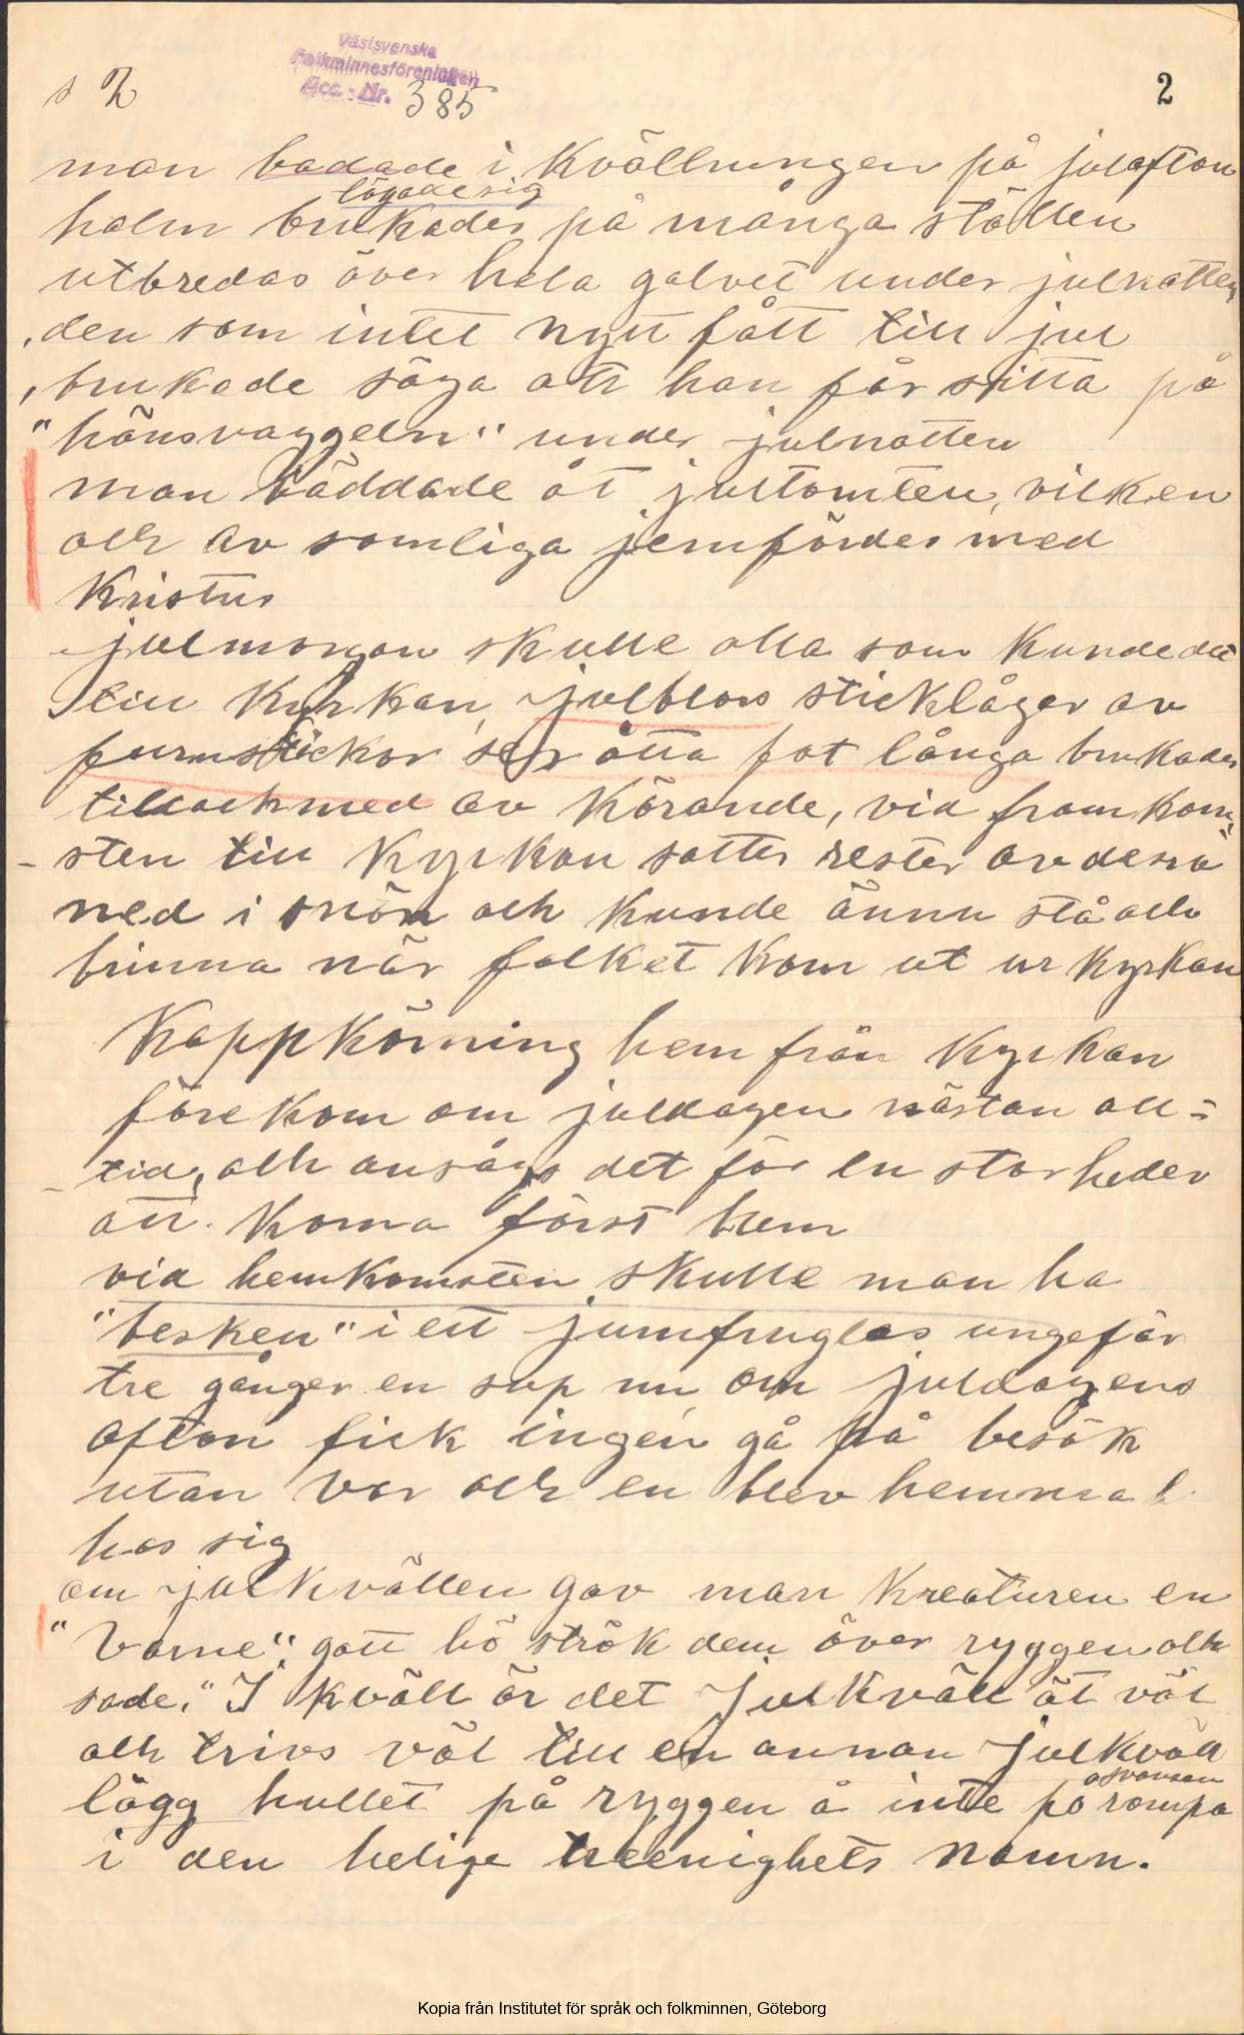 Västsvenska
Folkminnesföreningen
Acc. Nr. 385
s 2
2
man badade i kvällningen på julafton
lögade sig
halm brukades på många ställen
utbredas över hela golvet under julnatten
den som intet nytt fått till jul
brukade säga att han får sitta på
"hönsvaggeln" under julnatten
man bäddade åt jultomten, vilken
och av somliga jemfördes med
Kristus
julmorgon skulle alla som kunde det
till kyrkan, julbloss sticklågor av
furustickor sex åtta fot långa brukades
tilloch med av körande, vid framkom-
sten till kyrkan sattes rester av dessa
ned i snön och kunde ännu stå och
brinna när folket kom ut ur kyrkan
Kappkörning hem från kyrkan
förekom om juldagen nästan all-
tid, och ansågs det för en stor heder
att koma först hem
vid hemkomsten skulle man ha
"besken" i ett jumfruglas ungefär
tre gånger en sup nu, om juldagens
afton fick ingen gå på besök
utan var och en blev hemma
hos sig
om julkvällen gav man kreaturen en
"vame" gott hö strök dem över ryggen och
sade. "I kväll är det julkväll ät väl
och trivs väl till en annan julkväll
lägg hullet på ryggen å inte på rompa
svansen
i den helige treenighets namn.
Kopia från Institutet för språk och folkminnen, Göteborg